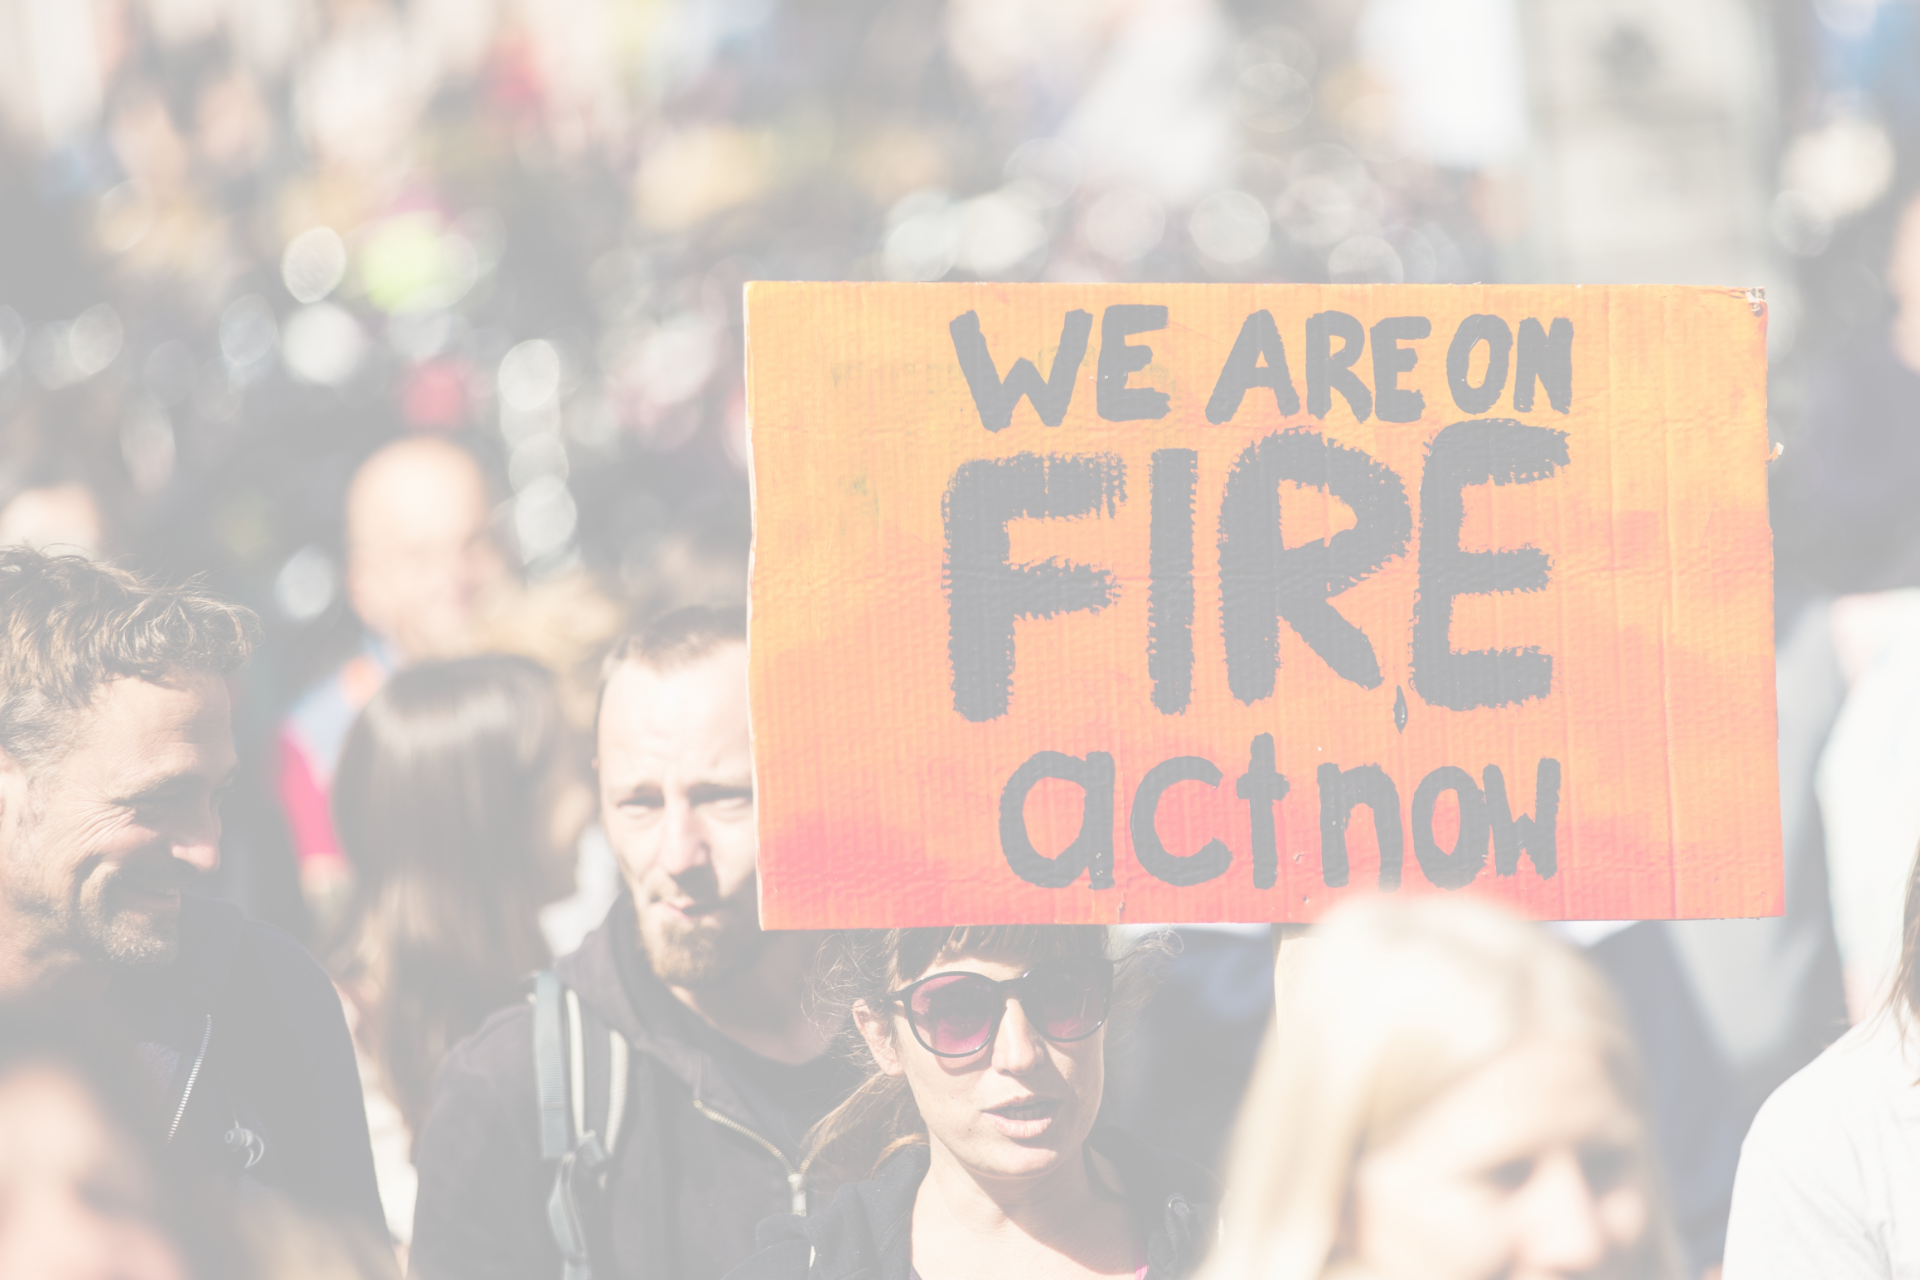 WE ARE ON
FIRE
act now